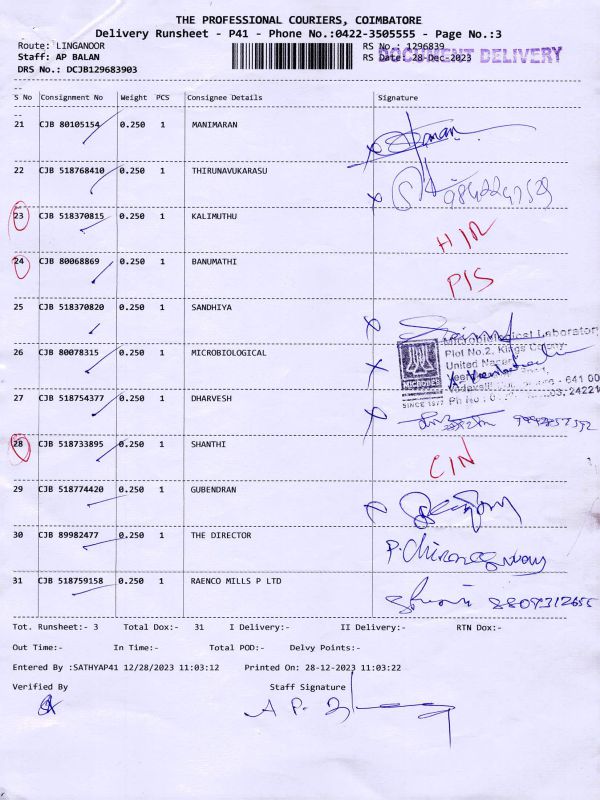 THE PROFESSIONAL COURIERS, COIMBATORE
Delivery Runsheet - P41 - Phone No.:0422-3505555 - Page No.:3
Route: LINGANOOR RS No.: 1296839
Staff: AP BALAN RS Date: 28-Dec-2023 DOCUMENT DELIVERY
DRS No.: DCJB129683903
S No Consignment No Weight PCS Consignee Details Signature
21 CJB 80105154 0.250 1 MANIMARAN
22 CJB 518768410 0.250 1 THIRUNAVUKARASU
23 CJB 518370815 0.250 1 KALIMUTHU
24 CJB 80068869 0.250 1 BANUMATHI
25 CJB 518370820 0.250 1 SANDHIYA
26 CJB 80078315 0.250 1 MICROBIOLOGICAL
Microbiological Laborator
Plot No.2, Kings Colony
United Nager
MICROBES
SINCE 1977
27 CJB 518754377 0.250 1 DHARVESH
28 CJB 518733895 0.250 1 SHANTHI CIN
29 CJB 518774420 0.250 1 GUBENDRAN
30 CJB 89982477 0.250 1 THE DIRECTOR
31 CJB 518759158 0.250 1 RAENCO MILLS P LTD
Tot. Runsheet:- 3 Total Dox:- 31 I Delivery:- II Delivery:- RTN Dox:-
Out Time:- In Time:- Total POD:- Delvy Points:-
Entered By :SATHYAP41 12/28/2023 11:03:12 Printed On: 28-12-2023 11:03:22
Verified By Staff Signature